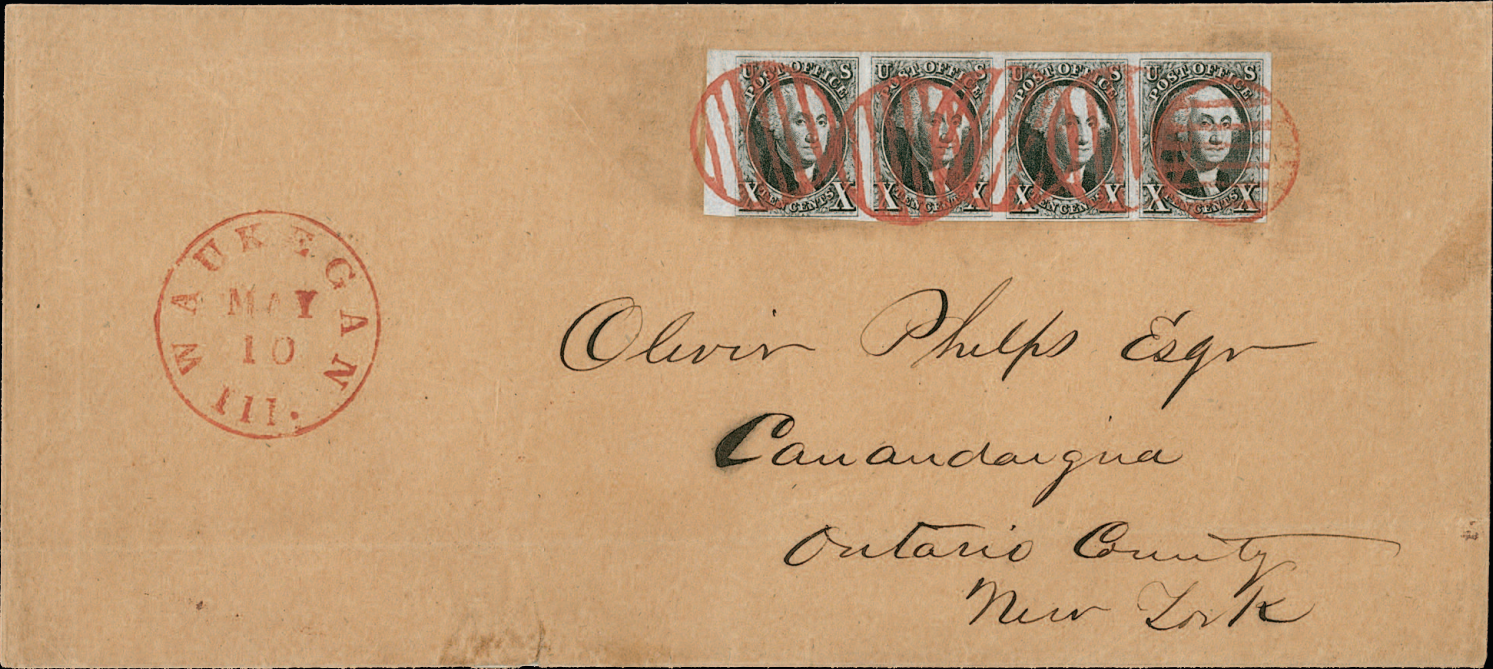 U POST OFFICE S
X TEN CENTS X
U POST OFFICE S
X TEN CENTS X
U POST OFFICE S
X TEN CENTS X
U POST OFFICE S
X TEN CENTS X
WAUKEGAN
MAY
10
Ill.
Oliver Phelps Esqr
Canandaigua
Ontario County
New York